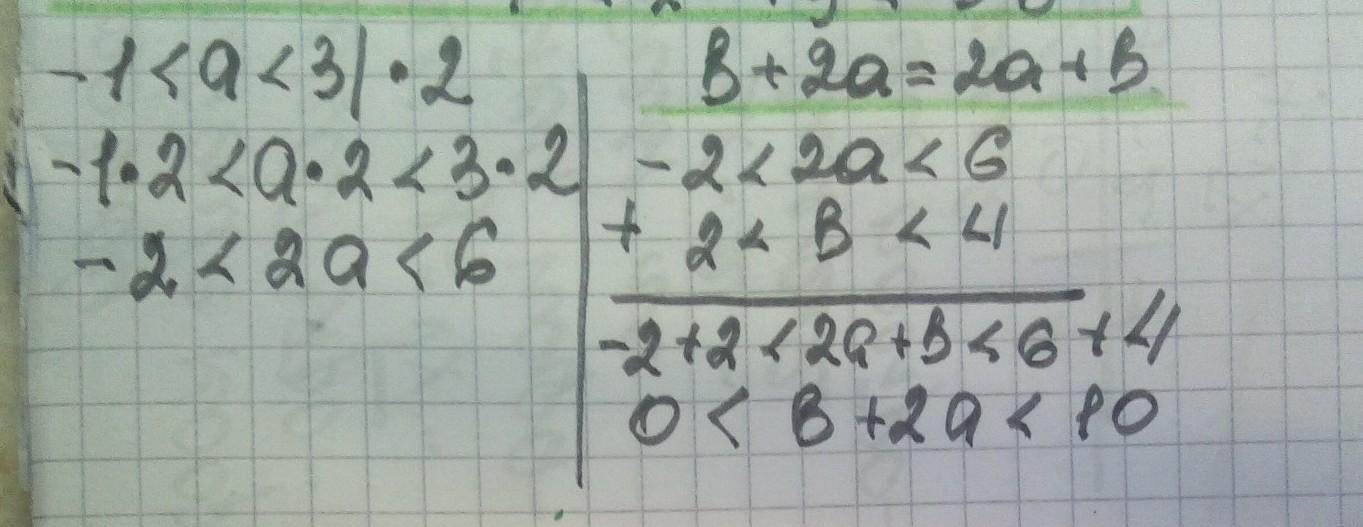 -1 < a < 3 | • 2
-1 • 2 < a • 2 < 3 • 2
-2 < 2a < 6
в + 2a = 2a + в
-2 < 2a < 6
+ 2 < в < 4
-2 + 2 < 2a + в < 6 + 4
0 < в + 2a < 10